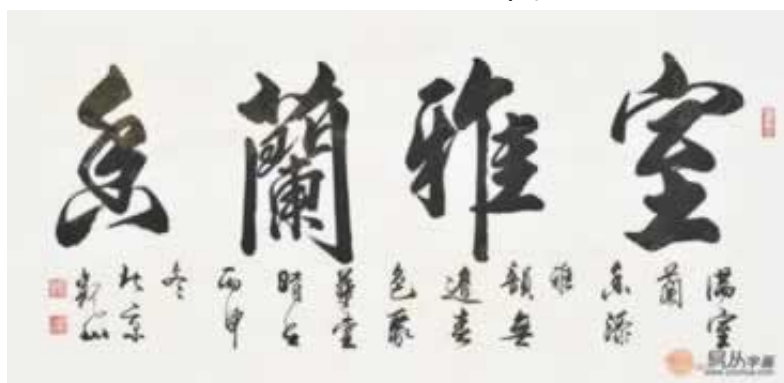 室雅蘭香
滿室
蘭
香添
雅
韻無
邊春
色聚
華堂
丙申
冬
於京
易从字画